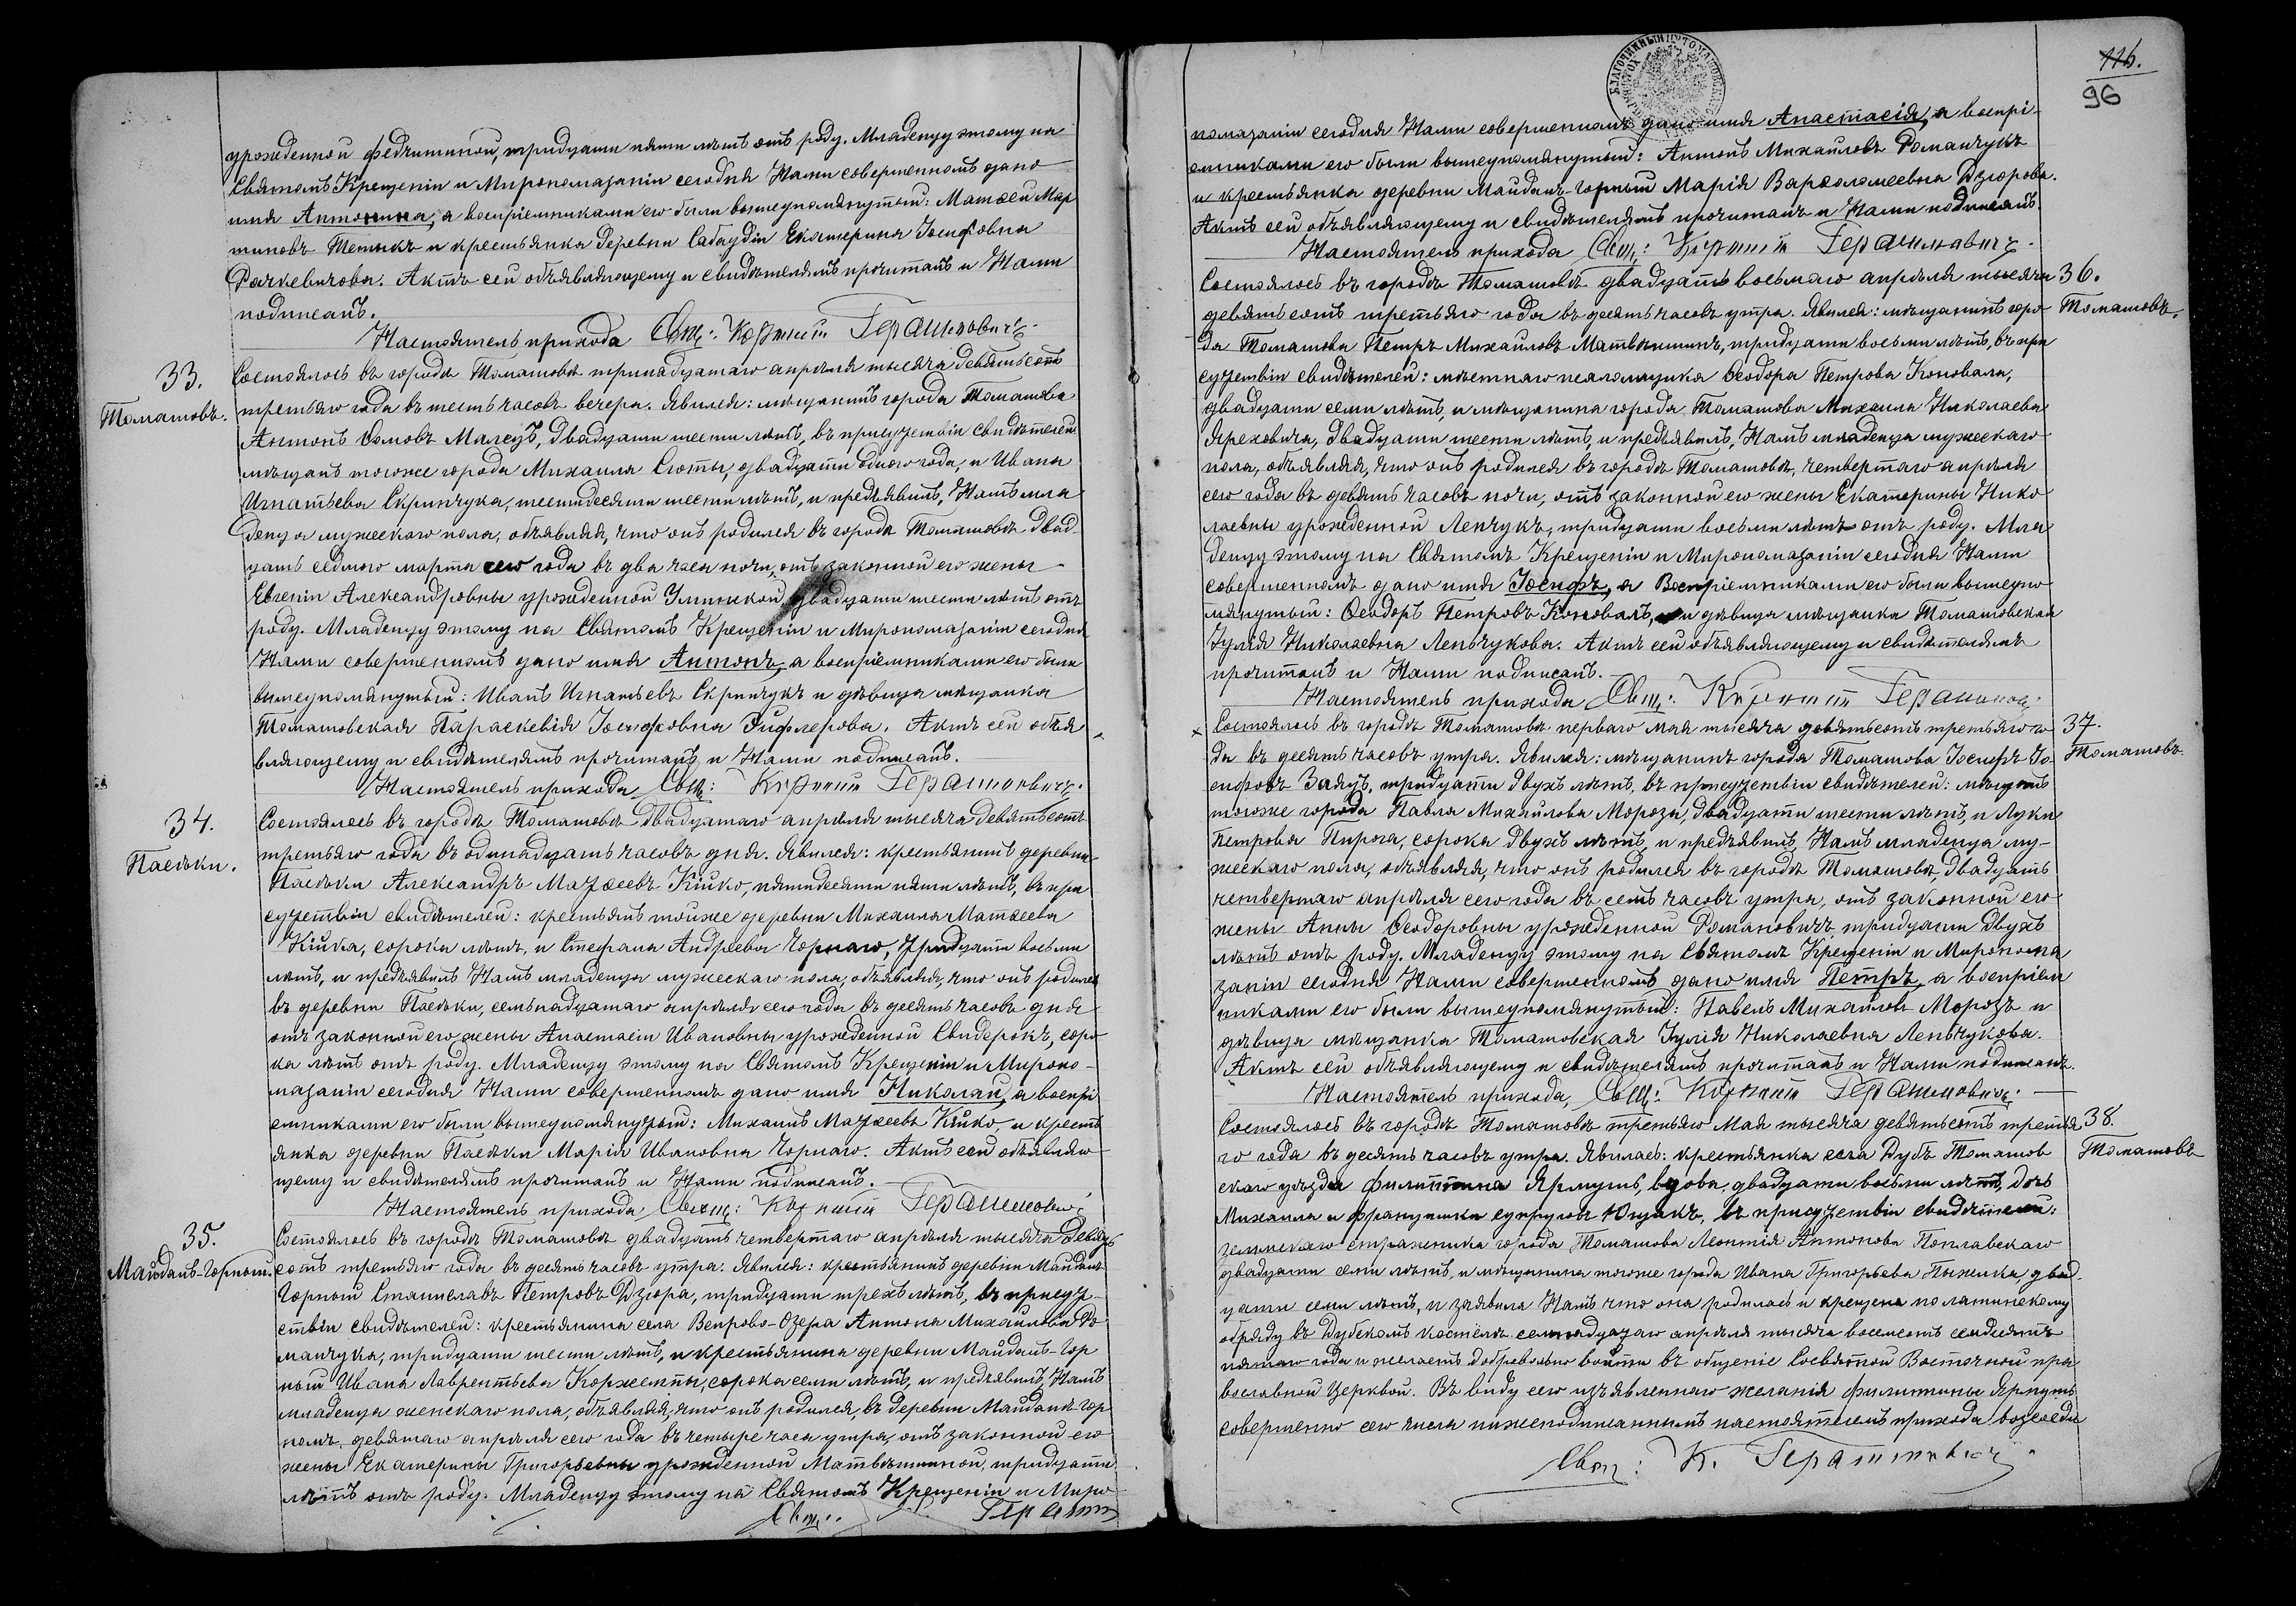 урожденной Федчишиной, тридцати пяти лѣтъ отъ роду. Младенцу этому на
Святомъ Крещеніи и Миропомазаніи сегодня Нами совершенномъ дано
имя Антонина, а воспріемниками его были вышеупомянутый: Матѳей Мар
тиновъ и крестьянка деревни Екатерина Іосифовна
Актъ сей объявляющему и свидѣтелямъ прочитанъ и Нами
подписанъ.
Настоятель прихода Свящ: Герашимовичъ.
33.
Томашовъ.
Состоялось въ городѣ Томашовѣ тринадцатаго апрѣля тысяча девятьсотъ
третьяго года въ шесть часовъ вечера. Явился: мѣщанинъ города Томашова
Антонъ Малецъ, двадцати шести лѣтъ, въ присутствіи свидѣтелей
мѣщанъ тогоже города Михаила Сюты, двадцати одного года, и Ивана
Игнатьева Скринчука, шестидесяти шести лѣтъ, и предъявилъ Намъ мла
денца мужескаго пола, объявляя, что онъ родился въ городѣ Томашовѣ двад
цать седьмого марта сего года въ два часа ночи, отъ законной его жены
Евгеніи Александровны урожденной двадцати шести лѣтъ отъ
роду. Младенцу этому на Святомъ Крещеніи и Миропомазаніи сегодня
Нами совершенномъ дано имя Антонъ, а воспріемниками его были
вышеупомянутый: Иванъ Игнатьевъ Скринчукъ и дѣвица мѣщанка
Томашовская Параскевія Іосифовна Актъ сей объя
вляющему и свидѣтелямъ прочитанъ и Нами подписанъ.
Настоятель прихода Свящ: Герашимовичъ.
34.
Пасѣки.
Состоялось въ городѣ Томашовѣ двадцатаго апрѣля тысяча девятьсотъ
третьяго года въ одинадцать часовъ дня. Явился: крестьянинъ деревни
Пасѣки Александръ Матѳеевъ Кійко, пятидесяти пяти лѣтъ, въ при
сутствіи свидѣтелей: крестьянъ тойже деревни Михаила Матѳеева
Кійка, сорока лѣтъ, и Стефана Андреева Чорнаго, тридцати восьми
лѣтъ, и предъявилъ Намъ младенца мужескаго пола, объявляя, что онъ родился
въ деревни Пасѣки, семьнадцатаго апрѣля сего года въ десять часовъ дня
отъ законной его жены Анастасіи Ивановны урожденной Свидерокъ, соро
ка лѣтъ отъ роду. Младенцу этому на Святомъ Крещеніи и Миропо-
мазаніи сегодня Нами совершенномъ дано имя Николай, а воспрі
емниками его были вышеупомянутый: Михаилъ Матѳеевъ Кійко, и кресть
янка деревни Пасѣки Марія Ивановна Чорнаго. Актъ сей объявляю
щему и свидѣтелямъ прочитанъ и Нами подписанъ.
Настоятель прихода Свящ: Герашимович
35.
Майданъ-Горный.
Состоялось въ городѣ Томашовѣ двадцать четвертаго апрѣля тысяча девять
сотъ третьяго года въ десять часовъ утра. Явился: крестьянинъ деревни Майданъ
Горный Станиславъ Петровъ Дзюра, тридцати трехъ лѣтъ, въ присут-
ствіи свидѣтелей: крестьянина села Вепрово-Озера Антона Михайлова Ро
манчука, тридцати шести лѣтъ, и крестьянина деревни Майданъ-Гор
ный Ивана Лаврентьева сорока семи лѣтъ, и предъявилъ Намъ
младенца женскаго пола, объявляя, что онъ родился, въ деревни Майданѣ Гор
номъ, девятаго апрѣля сего года въ четыре часа утра, отъ законной его
жены Екатерины Григорьевны урожденной Матвѣишиной, тридцати
лѣтъ отъ роду. Младенцу этому на Святомъ Крещеніи и Миро-
Свящ: Герашим
116.
96
помазаніи сегодня Нами совершенномъ дано имя Анастасія, а воспрі-
емниками его были вышеупомянутый: Антонъ Михайловъ Романчукъ
и крестьянка деревни Майданъ-Горный Марія Варѳоломеевна Дзюрова.
Актъ сей объявляющему и свидѣтелямъ прочитанъ и Нами подписанъ.
Настоятель прихода Свящ: Герашимовичъ.
36.
Томашовъ.
Состоялось въ городѣ Томашовѣ двадцать восьмаго апрѣля тысяча
девятьсотъ третьяго года въ десять часовъ утра. Явился: мѣщанинъ горо
да Томашова Петръ Михайловъ Матвѣишинъ, тридцати восьми лѣтъ, въ при
сутствіи свидѣтелей: мѣстнаго псаломщика Ѳеодора Петрова Коновала,
двадцати семи лѣтъ, и мѣщанина города Томашова Михаила Николаева
Яреховича, двадцати шести лѣтъ, и предъявилъ Намъ младенца мужескаго
пола, объявляя, что онъ родился въ городѣ Томашовѣ, четвертаго апрѣля
сего года въ девять часовъ ночи, отъ законной его жены Екатерины Нико
лаевны урожденной Ленчукъ, тридцати восьми лѣтъ отъ роду. Мла
денцу этому на Святомъ Крещеніи и Миропомазаніи сегодня Нами
совершенномъ дано имя Іосифъ, а Воспріемниками его были вышеупо
мянутый: Ѳеодоръ Петровъ Коновалъ, и дѣвица мѣщанка Томашовская
Іулія Николаевна Леньчукова. Актъ сей объявляющему и свидѣтелямъ
прочитанъ и Нами подписанъ.
Настоятель прихода Свящ: Герашимов
37.
Томашовъ
Состоялось въ городѣ Томашовѣ перваго мая тысяча девятьсотъ третьяго го
да въ десять часовъ утра. Явился: мѣщанинъ города Томашова Іосифъ Іо-
сифовъ Заяцъ, тридцати двухъ лѣтъ, въ присутствіи свидѣтелей: мѣщанъ
тогоже города Павла Михайлова Мороза, двадцати шести лѣтъ, и Луки
Петрова Пирога, сорока двухъ лѣтъ, и предъявилъ Намъ младенца му-
жескаго пола, объявляя, что онъ родился въ городѣ Томашовѣ, двадцать
четвертаго апрѣля сего года въ семь часовъ утра, отъ законной его
жены Анны Ѳеодоровны урожденной Романовичъ тридцати двухъ
лѣтъ отъ роду. Младенцу этому на Святомъ Крещеніи и Миропома
заніи сегодня Нами совершенномъ дано имя Петръ, а воспріем
никами его были вышеупомянутый: Павелъ Михайловъ Морозъ и
дѣвица мѣщанка Томашовская Іулія Николаевна Леньчукова.
Актъ сей объявляющему и свидѣтелямъ прочитанъ и Нами подписанъ.
Настоятель прихода, Свящ: Герашимович
38.
Томашовъ
Состоялось въ городѣ Томашовѣ третьяго Мая тысяча девятьсотъ третья
го года въ десять часовъ утра. Явилась: крестьянка села Дубъ Томашов
скаго уѣзда Филиппина Ярмушъ, вдова, двадцати восьми лѣтъ, дочь
Михаила и Францишки супруговъ въ присутствіи свидѣтелей:
земскаго стражника города Томашова Леонтія Антонова Поплавскаго
двадцати семи лѣтъ, и мѣщанина тогоже города Ивана Григорьева двад-
цати семи лѣтъ, и заявила Намъ что она родилась и крещена по латинскому
обряду въ Дубскомъ костёлѣ семнадцатаго апрѣля тысяча восемсотъ семдесятъ
пятаго года и желаетъ добровольно войти въ общеніе Сосвятой Восточной пра
вославной Церквой. Въ виду сего изъявленнаго желанія Филипины
совершенно сего числа нижеподписаннымъ настоятелемъ прихода возсоеди
Свящ: К. Герашимовичъ